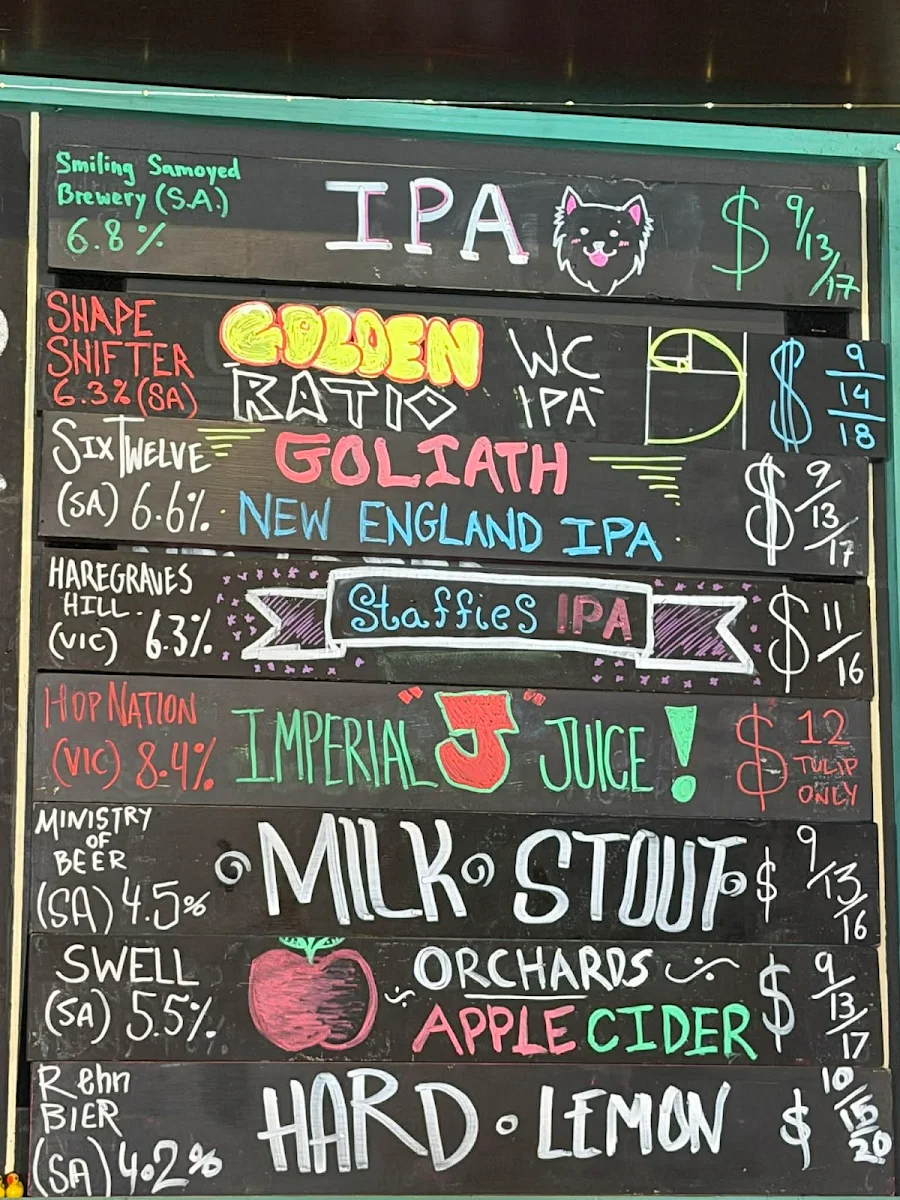 Smiling Samoyed
Brewery (S.A.)
6.8%
IPA
$ 9/13/17
SHAPE
SHIFTER
6.3% (SA)
GOLDEN
RATIO
WC
IPA
$ 9/14/18
SIXTWELVE
(SA) 6.6%
GOLIATH
NEW ENGLAND IPA
$ 9/13/17
HAREGRAVES
HILL.
(VIC) 6.3%
Staffies IPA
$ 11/16
HOP NATION
(VIC) 8.4%
IMPERIAL "J" JUICE!
$ 12
TULIP
ONLY
MINISTRY
OF
BEER
(SA) 4.5%
MILK STOUT
$ 9/13/16
SWELL
(SA) 5.5%
ORCHARDS
APPLE CIDER
$ 9/13/17
Rehn
BIER
(SA) 4.2%
HARD • LEMON
$ 10/15/20